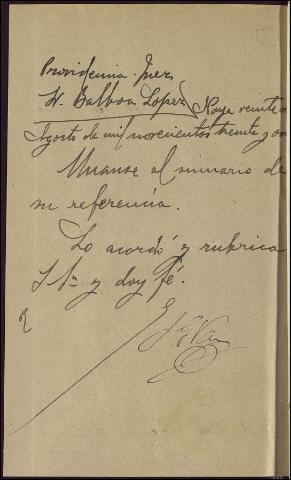 Providencia Juez
Sr. Balboa Lopez Noya veinte
Agosto de mil novecientos treinta y
Unanse al sumario de
su referencia.
Lo acordó y rubrica
S Sª y doy fé.